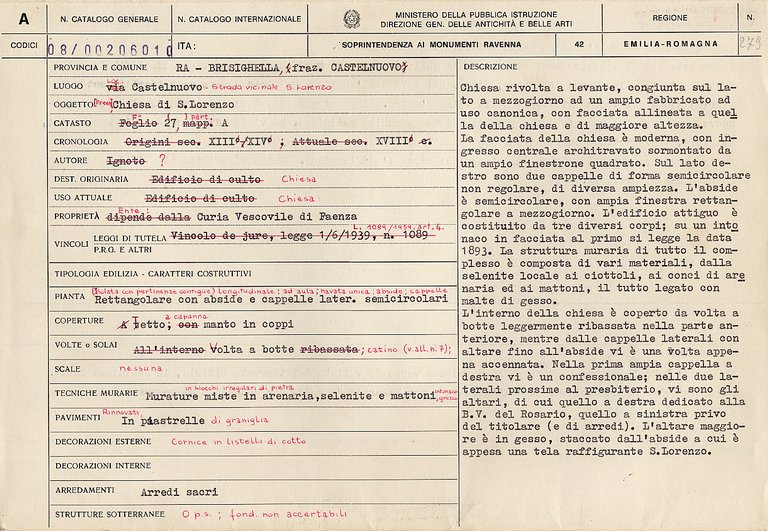 A
N. CATALOGO GENERALE
N. CATALOGO INTERNAZIONALE
MINISTERO DELLA PUBBLICA ISTRUZIONE
DIREZIONE GEN. DELLE ANTICHITÀ E BELLE ARTI
REGIONE
N.
CODICI
08/00206010
ITA:
SOPRINTENDENZA AI MONUMENTI RAVENNA
42
EMILIA-ROMAGNA
279
PROVINCIA E COMUNE RA - BRISIGHELLA, (fraz. CASTELNUOVO)
LUOGO via Castelnuovo - Strada vicinale S. Lorenzo
OGGETTO Chiesa di S.Lorenzo
CATASTO Foglio 27, mapp. A
F:
part.
CRONOLOGIA Origini sec. XIII°/XIV° ; Attuale sec. XVIII° c.
AUTORE Ignoto ?
DEST. ORIGINARIA Edificio di culto Chiesa
USO ATTUALE Edificio di culto Chiesa
Ente:
PROPRIETÀ dipende dalla Curia Vescovile di Faenza
L. 1089/1939, art. 4.
VINCOLI LEGGI DI TUTELA Vincolo de jure, legge 1/6/1939, n. 1089
P.R.G. E ALTRI
TIPOLOGIA EDILIZIA - CARATTERI COSTRUTTIVI
(Isolata con pertinenze contigue) longitudinale: ad aula; navata unica; abside; cappelle
PIANTA Rettangolare con abside e cappelle later. semicircolari
a capanna
COPERTURE A Tetto; con manto in coppi
VOLTE o SOLAI All'interno Volta a botte ribassata; catino (v. all. n. 7);
SCALE nessuna
in blocchi irregolari di pietra
TECNICHE MURARIE Murature miste in arenaria,selenite e mattoni,
Rinnovati
PAVIMENTI In piastrelle di graniglia
DECORAZIONI ESTERNE Cornice in listelli di cotto
DECORAZIONI INTERNE
ARREDAMENTI Arredi sacri
STRUTTURE SOTTERRANEE O p.s. ; fond. non accertabili
DESCRIZIONE
Chiesa rivolta a levante, congiunta sul la-
to a mezzogiorno ad un ampio fabbricato ad
uso canonica, con facciata allineata a quel
la della chiesa e di maggiore altezza.
La facciata della chiesa è moderna, con in-
gresso centrale architravato sormontato da
un ampio finestrone quadrato. Sul lato de-
stro sono due cappelle di forma semicircolare
non regolare, di diversa ampiezza. L'abside
è semicircolare, con ampia finestra rettan-
golare a mezzogiorno. L'edificio attiguo è
costituito da tre diversi corpi; su un into
naco in facciata al primo si legge la data
1893. La struttura muraria di tutto il com-
plesso è composta di vari materiali, dalla
selenite locale ai ciottoli, ai conci di are
naria ed ai mattoni, il tutto legato con
malte di gesso.
L'interno della chiesa è coperto da volta a
botte leggermente ribassata nella parte an-
teriore, mentre dalle cappelle laterali con
altare fino all'abside vi è una volta appe-
na accennata. Nella prima ampia cappella a
destra vi è un confessionale; nelle due la-
terali prossime al presbiterio, vi sono gli
altari, di cui quello a destra dedicato alla
B.V. del Rosario, quello a sinistra privo
del titolare (e di arredi). L'altare maggio-
re è in gesso, staccato dall'abside a cui è
appesa una tela raffigurante S.Lorenzo.